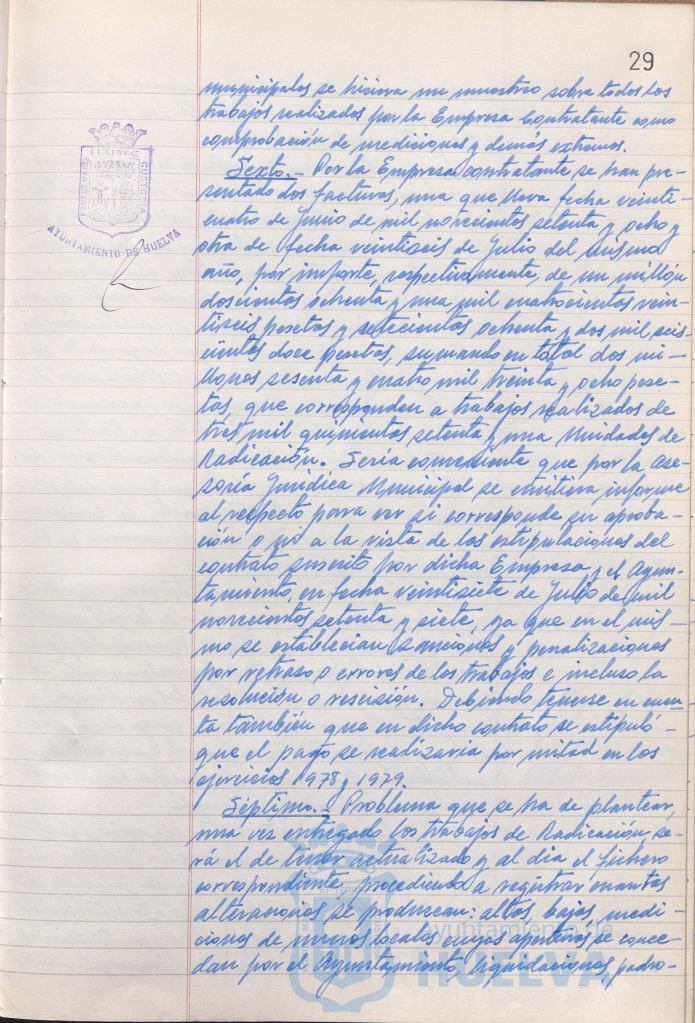 29
municipales se hiciera un muestreo sobre todos los
trabajos realizados por la Empresa Contratante como
comprobación de mediciones y demás extremos.
Sexto.- Por la Empresa contratante se han pre-
sentado dos facturas, una que lleva fecha veinti-
cuatro de Junio de mil novecientos setenta y ocho y
otra de fecha veintiseis de Julio del mismo
año, por importe, respectivamente, de un millón
doscientos ochenta y una mil cuatrocientos vein-
tiseis pesetas y setecientos ochenta y dos mil seis-
cientos doce pesetas, sumando en total dos mi-
llones sesenta y cuatro mil treinta y ocho pese-
tas, que corresponden a trabajos realizados de
tres mil quinientos setenta y una Unidades de
Radicación. Sería conveniente que por la Ase-
soría Jurídica Municipal se emitiera informe
al respecto para ver si corresponde su aproba-
ción o no a la vista de las estipulaciones del
contrato suscrito por dicha Empresa y el Ayun-
tamiento, en fecha veintisiete de Julio de mil
novecientos setenta y siete, ya que en el mis-
mo se establecian sanciones y penalizaciones
por retraso o errores de los trabajos e incluso la
resolución o rescisión. Debiendo tenerse en cuen-
ta también que en dicho contrato se estipuló
que el pago se realizaría por mitad en los
ejercicios 1978 y 1979.
Séptimo.- Problema que se ha de plantear,
una vez entregado los trabajos de Radicación, se-
rá el de tener actualizado y al dia el fichero
correspondiente, procediendo a registrar cuantas
alteraciones se produzcan: altas, bajas, medi-
ciones de nuevos locales cuyas aperturas se conce-
dan por el Ayuntamiento, liquidaciones, padro-
AYUNTAMIENTO DE HUELVA
Ayuntamiento de
HUELVA